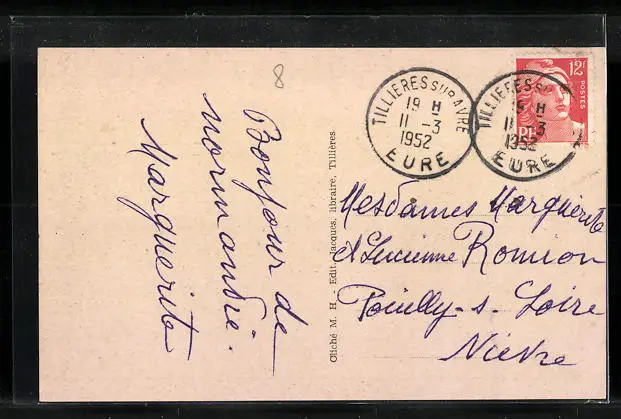 8
Bonjour de
normandie.
Marguerite
Cliché M. H. - Edit. Jacques, libraire, Tillières
TILLIERES SUR AVRE
19 H
11 -3
1952
EURE
TILLIERES SUR
19 H
11 -3
1952
EURE
12F
POSTES
Mesdames Marguerite
et Lucienne Romion
Pouilly-s-Loire
Nièvre